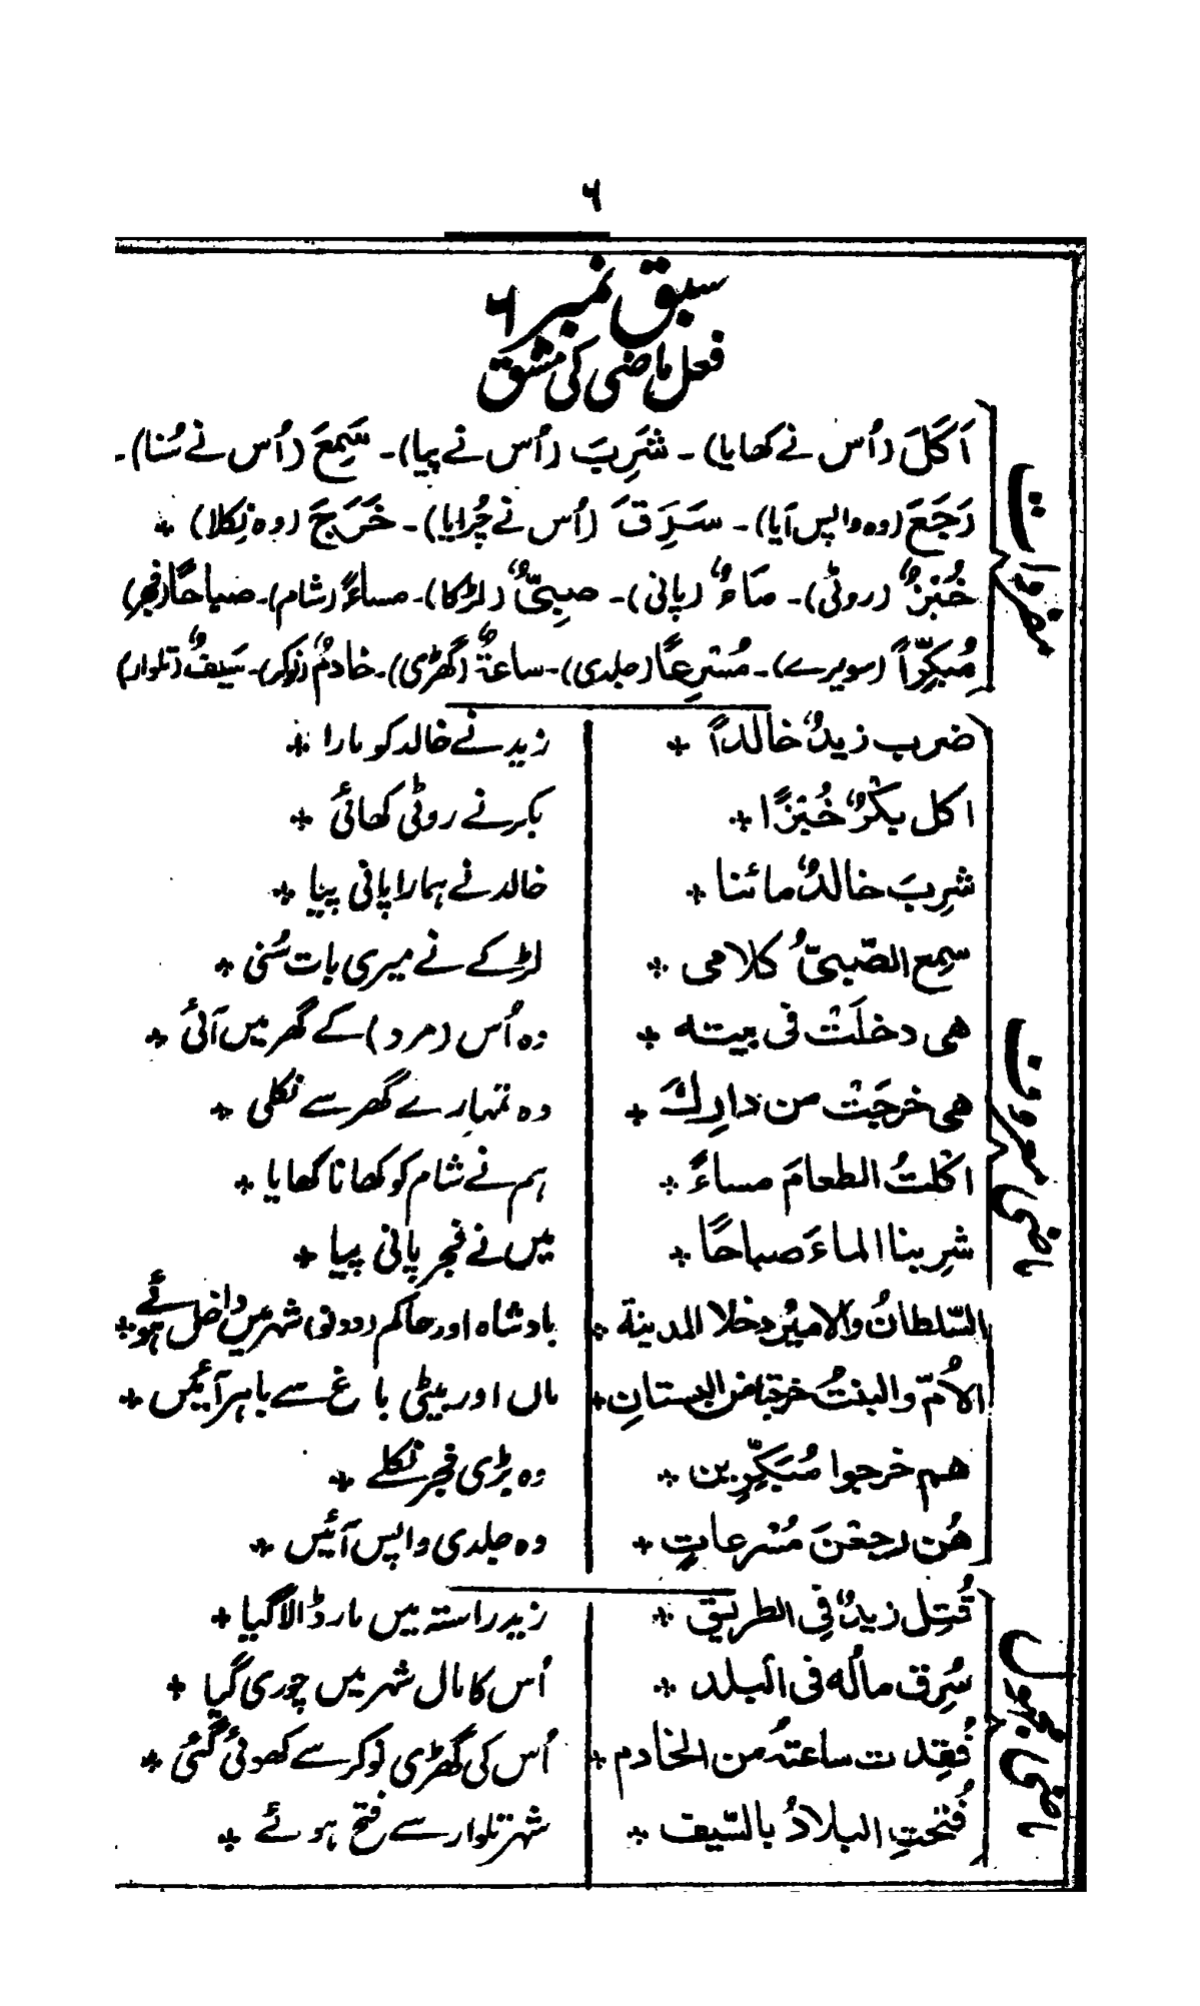 ٦
سبق نمبر ٦
فعل ماضی کی مشق
مفردات
اَکَلَ (اُس نے کھایا) ۔ شَرِبَ (اُس نے پیا) ۔ سَمِعَ (اُس نے سُنا) ۔
رَجَعَ (وہ واپس آیا) ۔ سَرَقَ (اُس نے چُرایا) ۔ خَرَجَ (وہ نِکلا) ٭
خُبْزٌ (روٹی) ۔ مَاءٌ (پانی) ۔ صبِیٌّ (لڑکا) ۔ مساءً (شام) ۔ صباحًا (فجر)
مُبَکِّراً (سویرے) ۔ مُسْرِعًا (جلدی) ۔ ساعۃٌ (گھڑی) ۔ خادمٌ (نوکر) ۔ سَیفٌ (تلوار)
ماضی معروف
ضرب زیدٌ خالداً ٭ زید نے خالد کو مارا ٭
اکل بکْرٌ خُبْزًا ٭ بکر نے روٹی کھائی ٭
شرِبَ خالدٌ مائنا ٭ خالد نے ہمارا پانی پیا ٭
سمِع الصّبیُّ کلامی ٭ لڑکے نے میری بات سُنی ٭
ھی دخلَتْ فی بیتہ ٭ وہ اُس (مرد) کے گھر میں آئی ٭
ھی خرجَتْ من دارِكَ ٭ وہ تمہارے گھر سے نکلی ٭
اکْلتُ الطعامَ مساءً ٭ ہم نے شام کو کھانا کھایا ٭
شرِبنا الماءَ صباحًا ٭ میں نے فجر پانی پیا ٭
السّلطانُ والامیرُ دخلا المدینۃ ٭ بادشاہ اور حاکم (دونو) شہر میں داخل ہوئے ٭
الاُمّ والبنتُ خرجتا من البستانِ ٭ ماں اور بیٹی باغ سے باہر آئیں ٭
ھم خرجوا مُبَکِّرِین ٭ وہ بڑی فجر نکلے ٭
ھُن رجعْنَ مُسْرعاتٍ ٭ وہ جلدی واپس آئیں ٭
ماضی مجہول
قُتِل زیدٌ فِی الطریق ٭ زید راستہ میں مار ڈالا گیا ٭
سُرِق مالُہ فی البلد ٭ اُس کا مال شہر میں چوری گیا ٭
فُقِدت ساعتہُ من الخادم ٭ اُس کی گھڑی نوکر سے کھوئی گئی ٭
فُتحتِ البلادُ بالسّیف ٭ شہر تلوار سے فتح ہوئے ٭